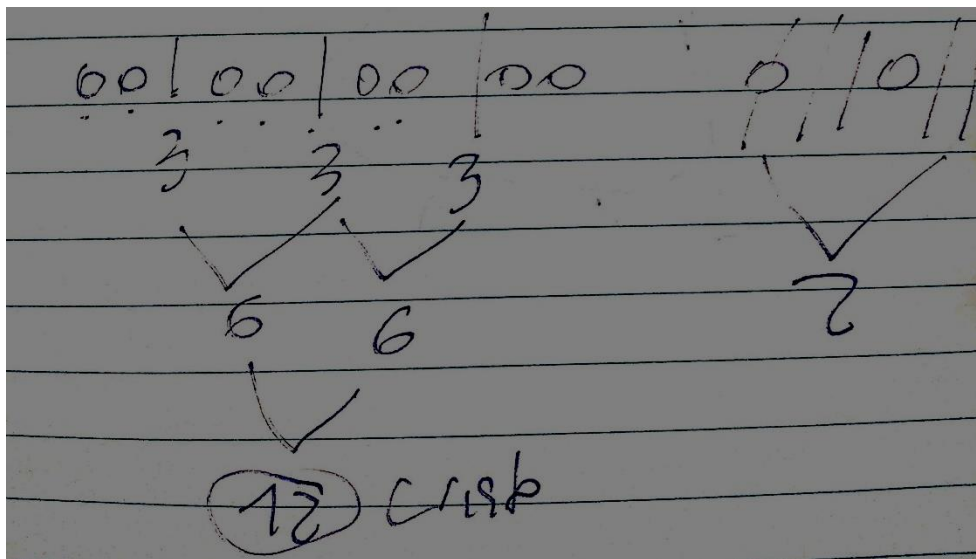 00|00|00|00 0||0||
3 3 3
6 6 2
12